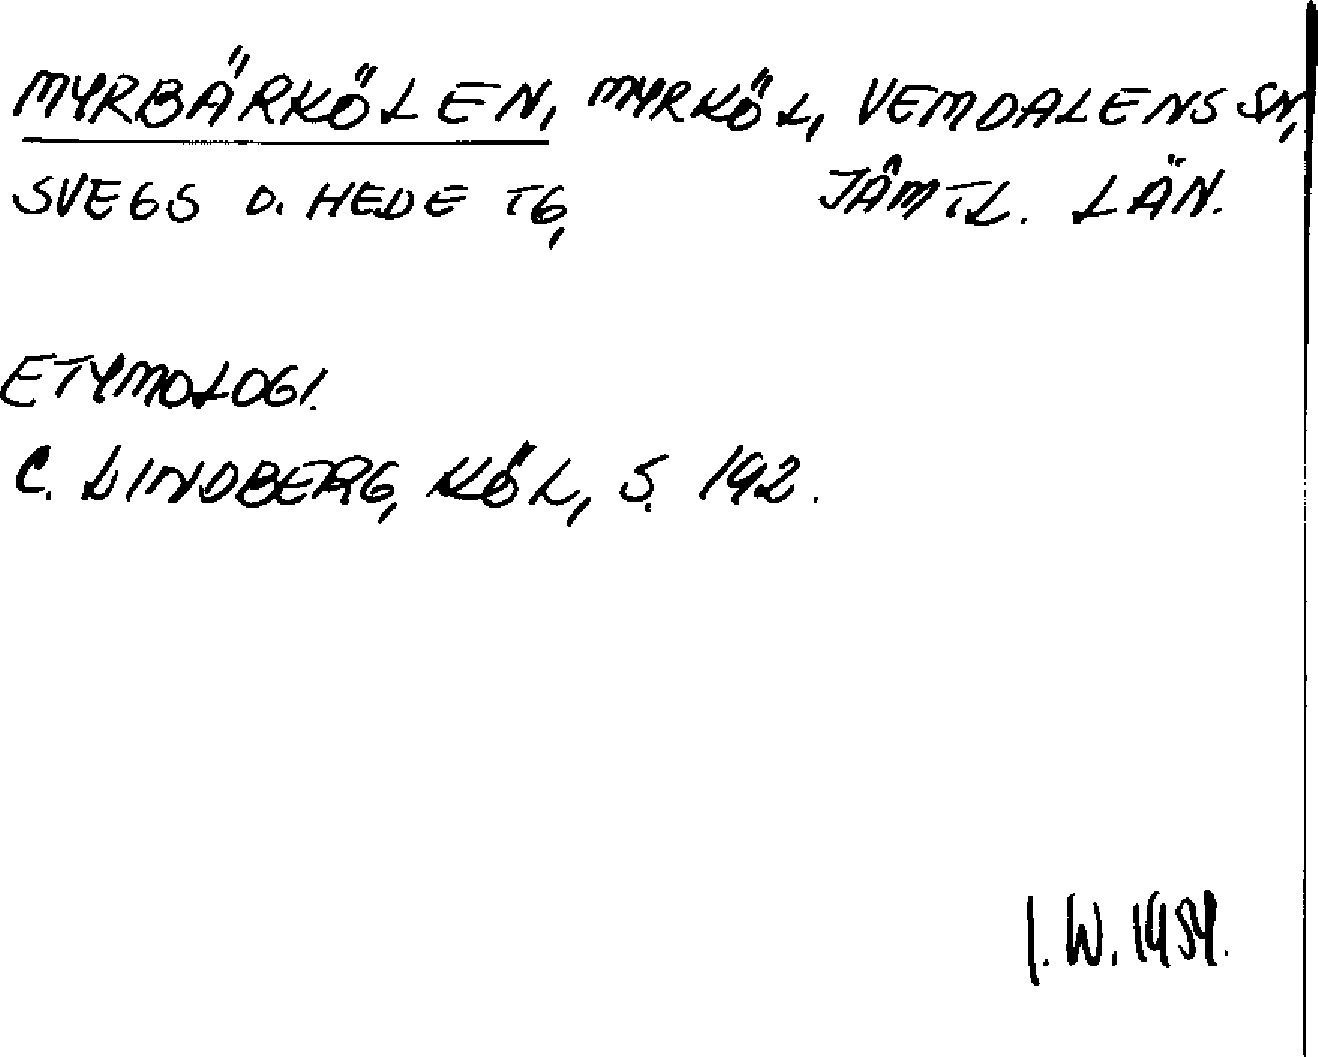 MYRBÄRKÖLEN, MYRKÖL, VEMDALENS SN,
SVEGS O. HEDE TG, JÄMTL. LÄN.
ETYMOLOGI.
C. LINDBERG, KÖL, S. 192.
I. W. 1984.